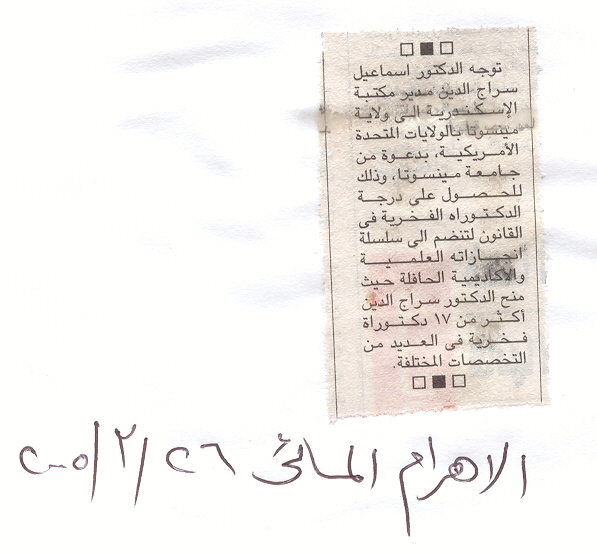 توجه الدكتور اسماعيل
سراج الدين مدير مكتبة
الإسكندرية إلى ولاية
مينسوتا بالولايات المتحدة
الأمريكية، بدعوة من
جامعة مينسوتا، وذلك
للحصول على درجة
الدكتوراه الفخرية فى
القانون لتنضم الى سلسلة
انجازاته العلمية
والأكاديمية الحافلة حيث
منح الدكتور سراج الدين
أكثر من ١٧ دكتوراة
فخرية فى العديد من
التخصصات المختلفة.
الاهرام المسائى ٢٦/٢/٢٠٠٥